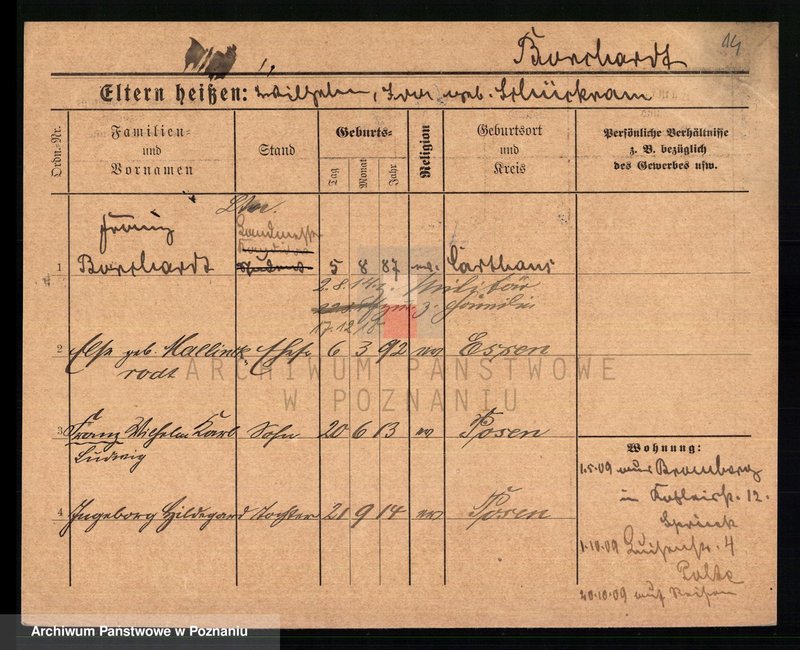 Borchardt 14
Eltern heißen: Wilhelm, Ida geb. Schückram
Ordn.-Nr.
Familien-
und
Vornamen
Stand
Geburts-
Tag
Monat
Jahr
Religion
Geburtsort
und
Kreis
Persönliche Verhältnisse
z. B. bezüglich
des Gewerbes usw.
Franz
Landmesser
1 Borchardt 5 8 87 ev. Carthaus
2.8.14 z. Militär
17.12.18 z. Familie
2 Else geb. Mallinck- Ehefr 6 3 92 ev Essen
rodt
3 Franz Wilhelm Karl Sohn 20 6 13 ev Posen
Ludwig
4 Ingeborg Hildegard Tochter 21 9 14 ev Posen
Wohnung:
1.5.09 aus Bromberg
12.
1.10.09 Luisenstr. 4
20.10.09 auf Reisen
ARCHIWUM PAŃSTWOWE
W POZNANIU
Archiwum Państwowe w Poznaniu